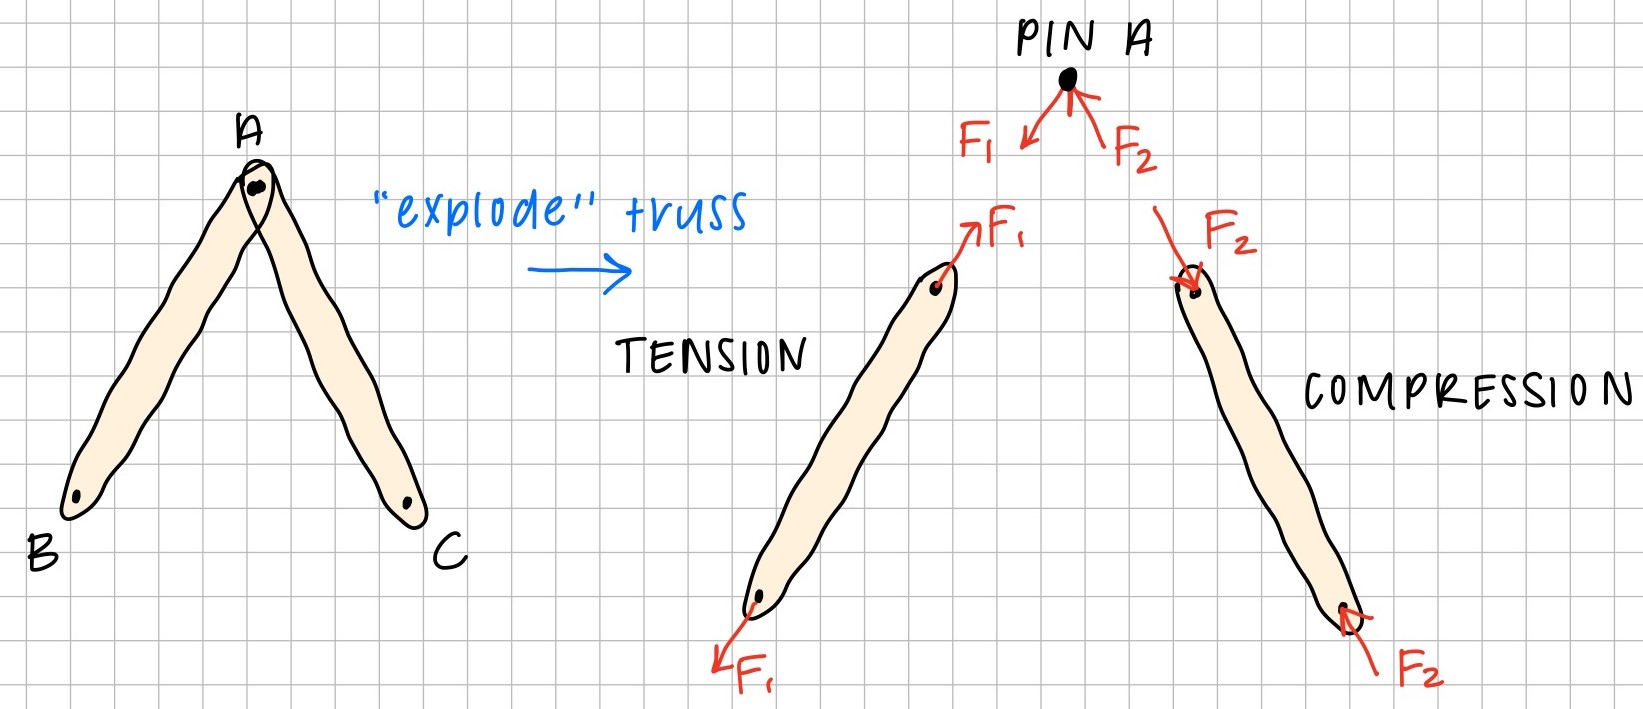 A
B
C
"explode" truss
PIN A
F₁
F₂
F₁
F₂
TENSION
COMPRESSION
F₁
F₂